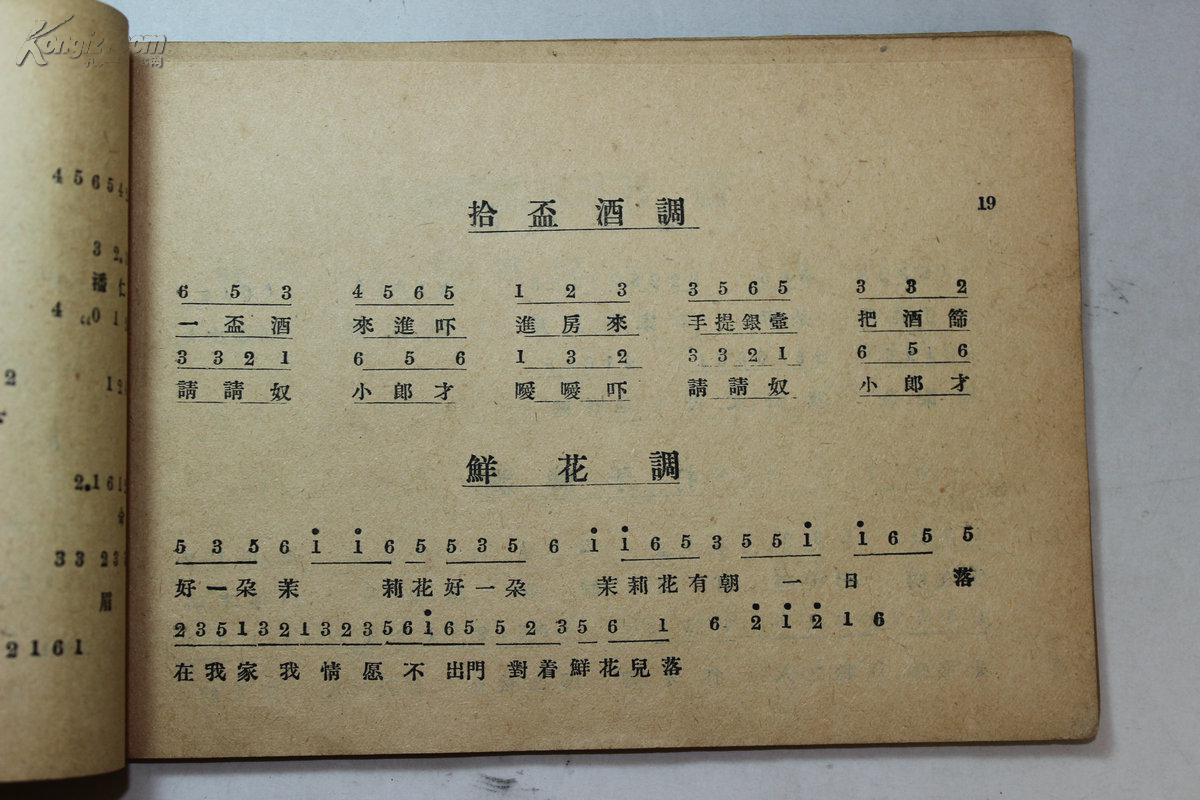 Kongfz.com
19
拾盃酒調
6 5 3 4 5 6 5 1 2 3 3 5 6 5 3 3 2
一盃酒 來進吓 進房來 手提銀壼 把酒篩
3 3 2 1 6 5 6 1 3 2 3 3 2 1 6 5 6
請請奴 小郎才 噯噯吓 請請奴 小郎才
鮮花調
5 3 5 6 i i 6 5 5 3 5 6 i i 6 5 3 5 5 i i 6 5 5
好一朶茉 莉花好一朶 茉莉花有朝 一日 落
2 3 5 1 3 2 1 3 2 3 5 6 i 6 5 5 2 3 5 6 1 6 2̇ i 2̇ 1 6
在我家我情愿不出門對着鮮花兒落
4 5 6 5 4
3 2.
潘仁
4 0 1
2 1 2
2.1 6 1
3 3 2 3
眉
2 1 6 1